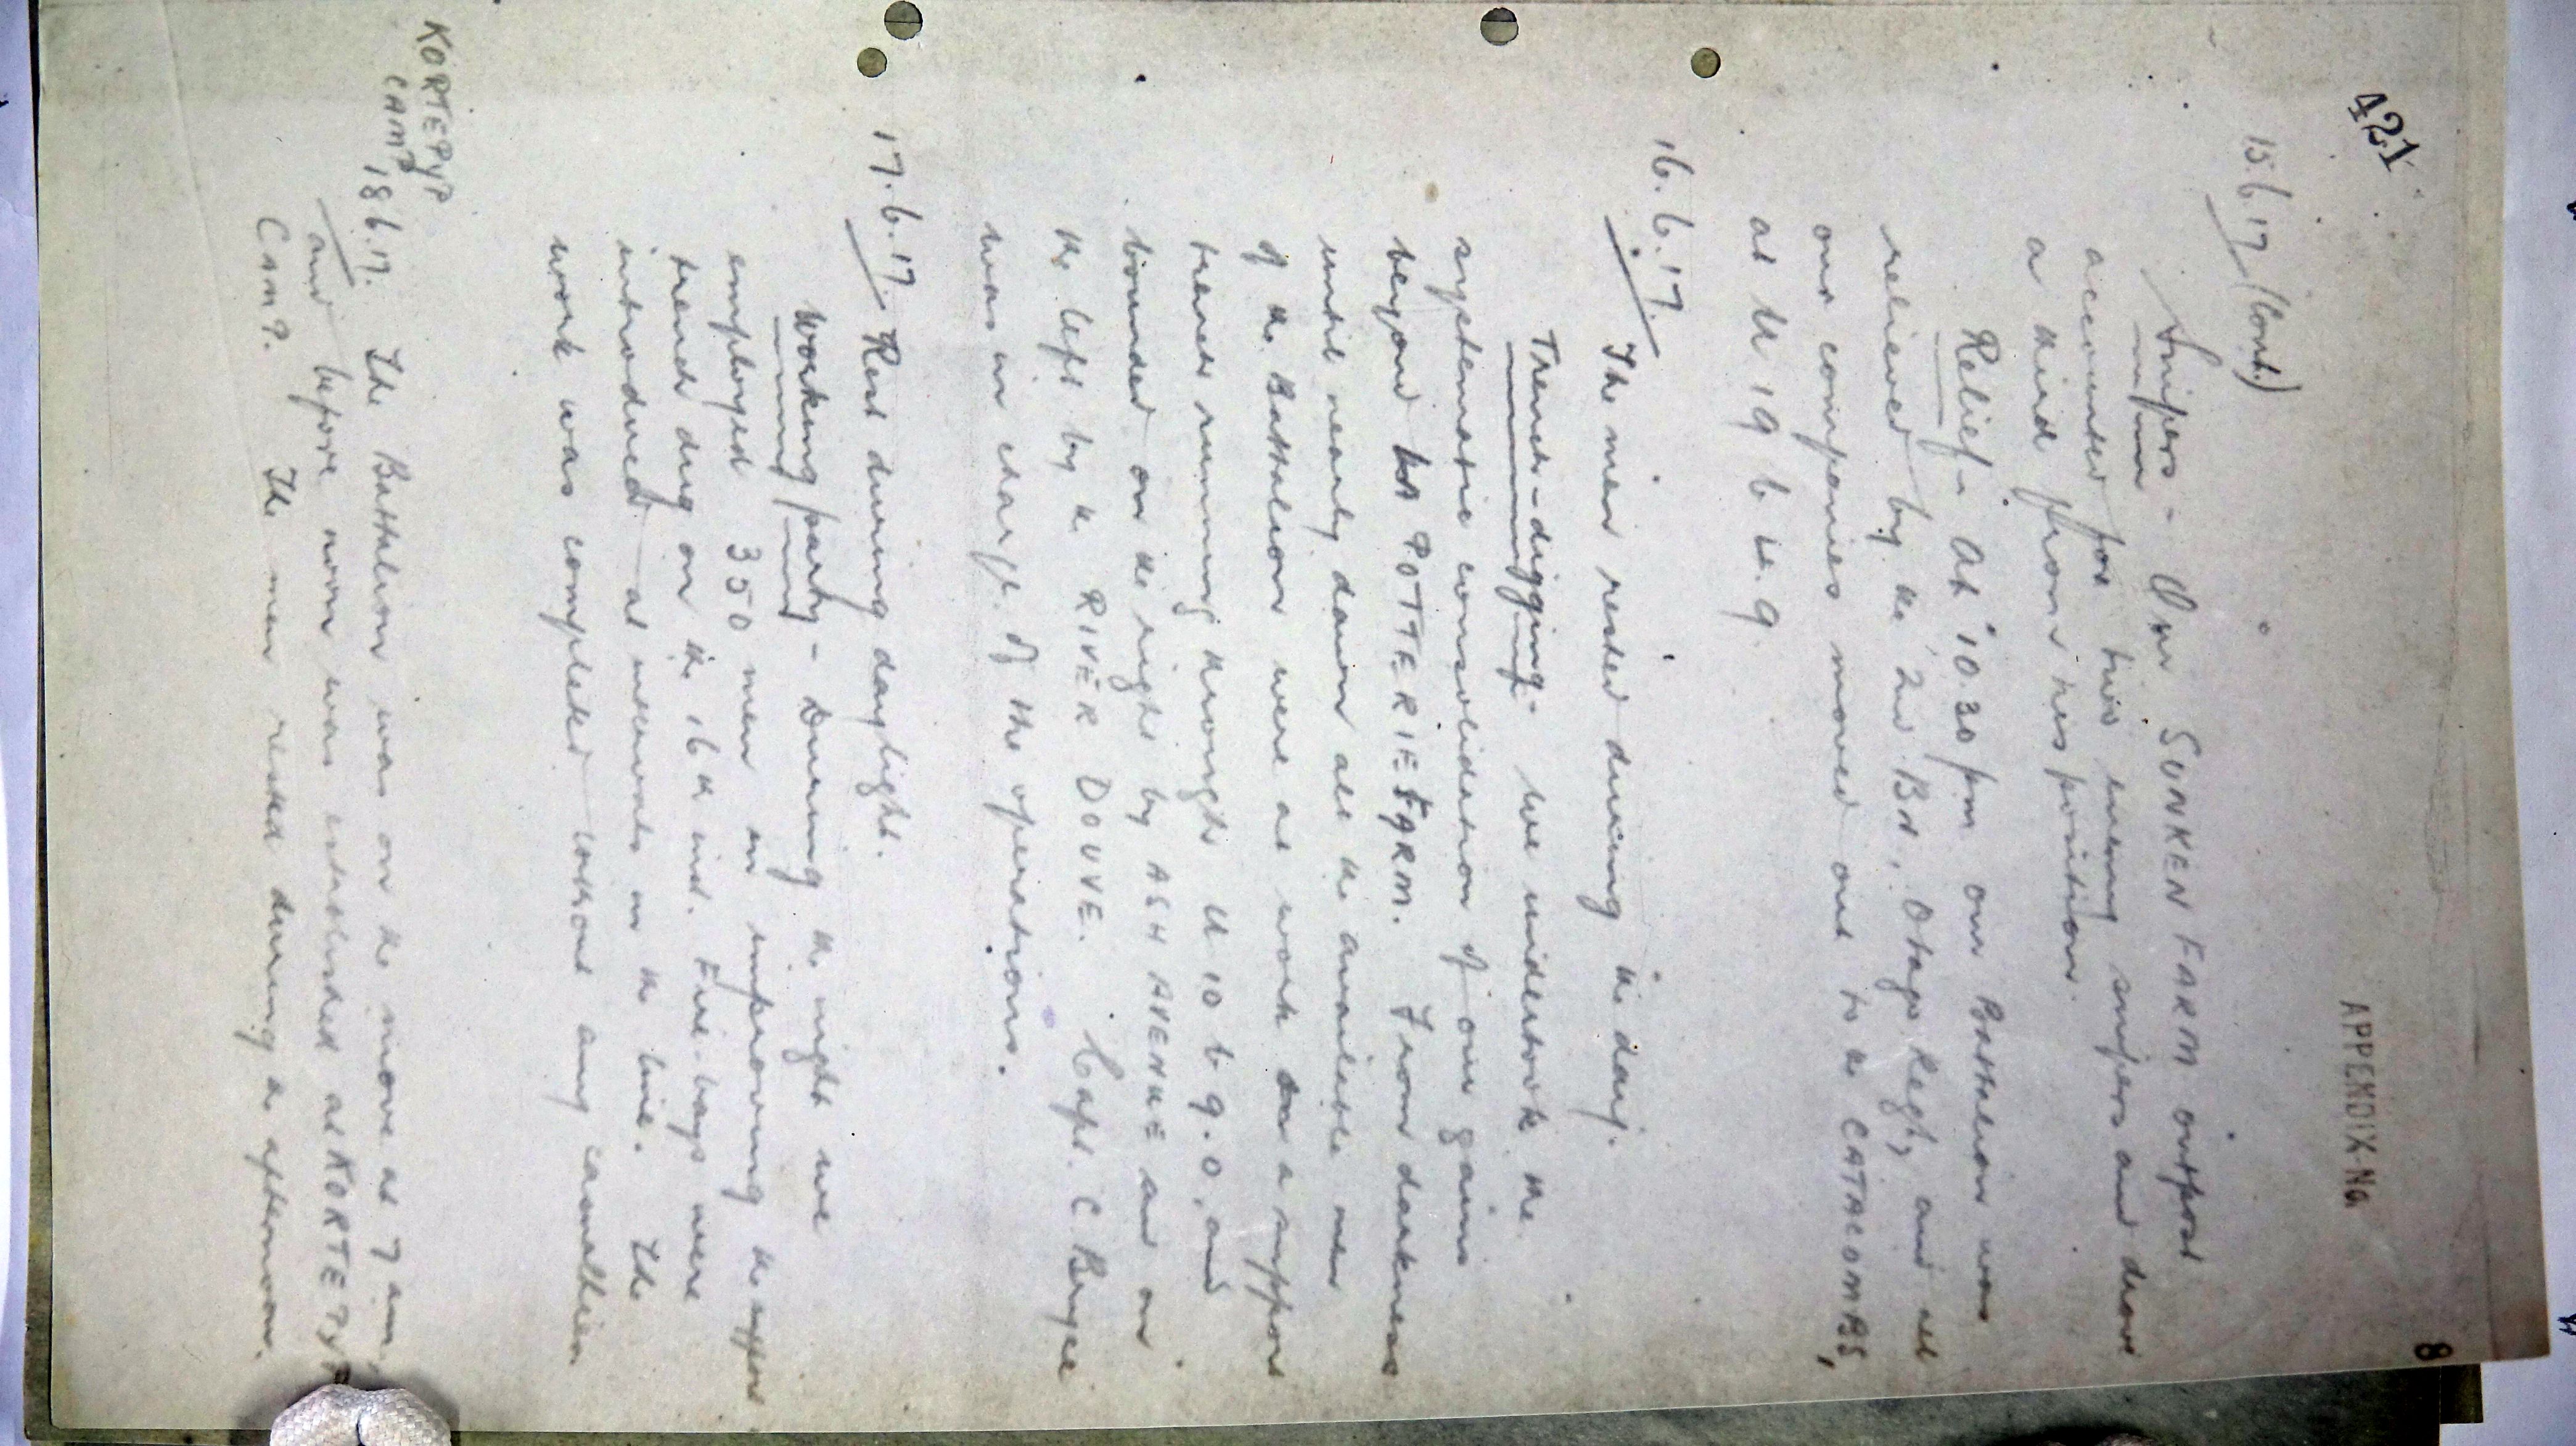 421
APPENDIX No.
8
15.6.17 (Cont.)
Snipers - Our SUNKEN FARM outpost
accounted for two enemy snipers and drove
a third from his position.
Relief - At 10.30 pm our Battalion was
relieved by the 2nd Bn, Otago Regt, and all
our companies moved out to the CATACOMBS,
at U 19 b 4.9
16.6.17. The men rested during the day.
Trench-digging - We undertook the
systematic consolidation of our gains
beyond LA POTTERIE FARM. From darkness
until nearly dawn all the available men
of the Battalion were at work on a support
trench running through U 10 b 9.0, and
bounded on the right by ASH AVENUE and on
the left by the RIVER DOUVE. Capt. C. Bryce
was in charge of the operations.
17.6.17. Rest during daylight.
Working party - During the night we
employed 350 men in improving the support
trench dug on the 16th inst. Fire-bays were
introduced at intervals in the line. The
work was completed without any casualties
KORTEPYP
CAMP
18.6.17. The Battalion was on the move at 7 am,
and before noon was established at KORTEPYP
Camp. The men rested during the afternoon.